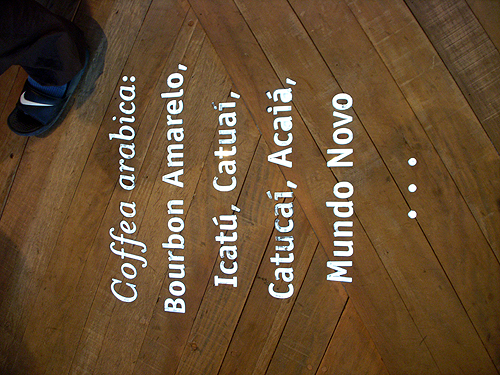 Coffea arabica:
Bourbon Amarelo,
Icatú, Catuaí,
Catucaí, Acaiá,
Mundo Novo
...